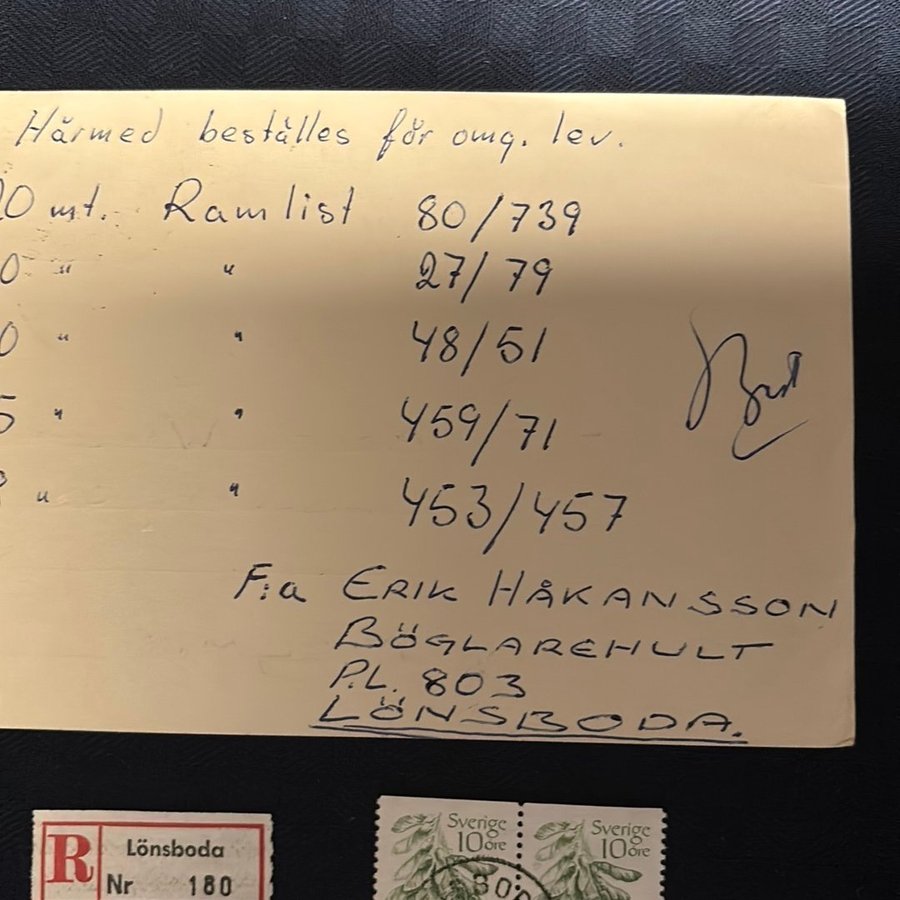 Härmed beställes för omg. lev.
0 mt. Ramlist 80/739
0 " " 27/79
0 " " 48/51
5 " " 459/71
" " 453/457
F:a ERIK HÅKANSSON
BÖGLAREHULT
P.L. 803
LÖNSBODA.
R Lönsboda
Nr 180
Sverige 10 öre Sverige 10 öre